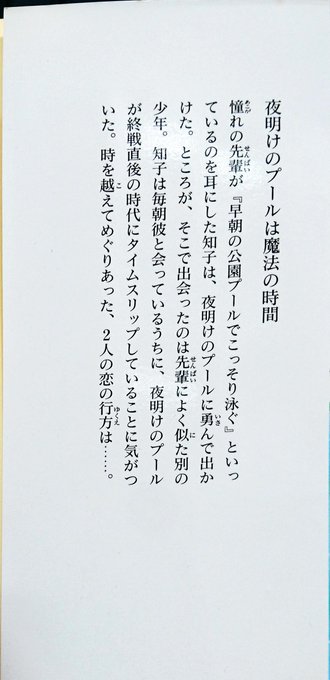 夜明けのプールは魔法の時間
憧れの先輩が『早朝の公園プールでこっそり泳ぐ』といっ
ているのを耳にした知子は、夜明けのプールに勇んで出か
けた。ところが、そこで出会ったのは先輩によく似た別の
少年。知子は毎朝彼と会っているうちに、夜明けのプール
が終戦直後の時代にタイムスリップしていることに気がつ
いた。時を越えてめぐりあった、2人の恋の行方は……。